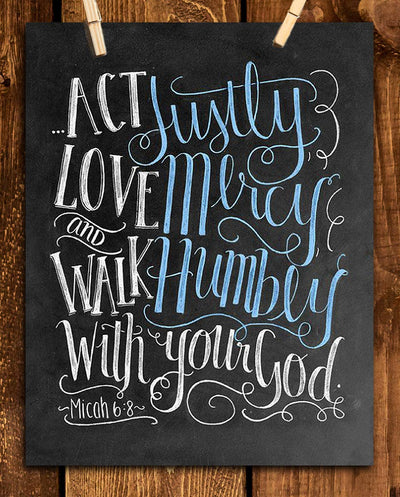 ...ACT Justly
LOVE Mercy
and
WALK Humbly
With your God.
~Micah 6:8~